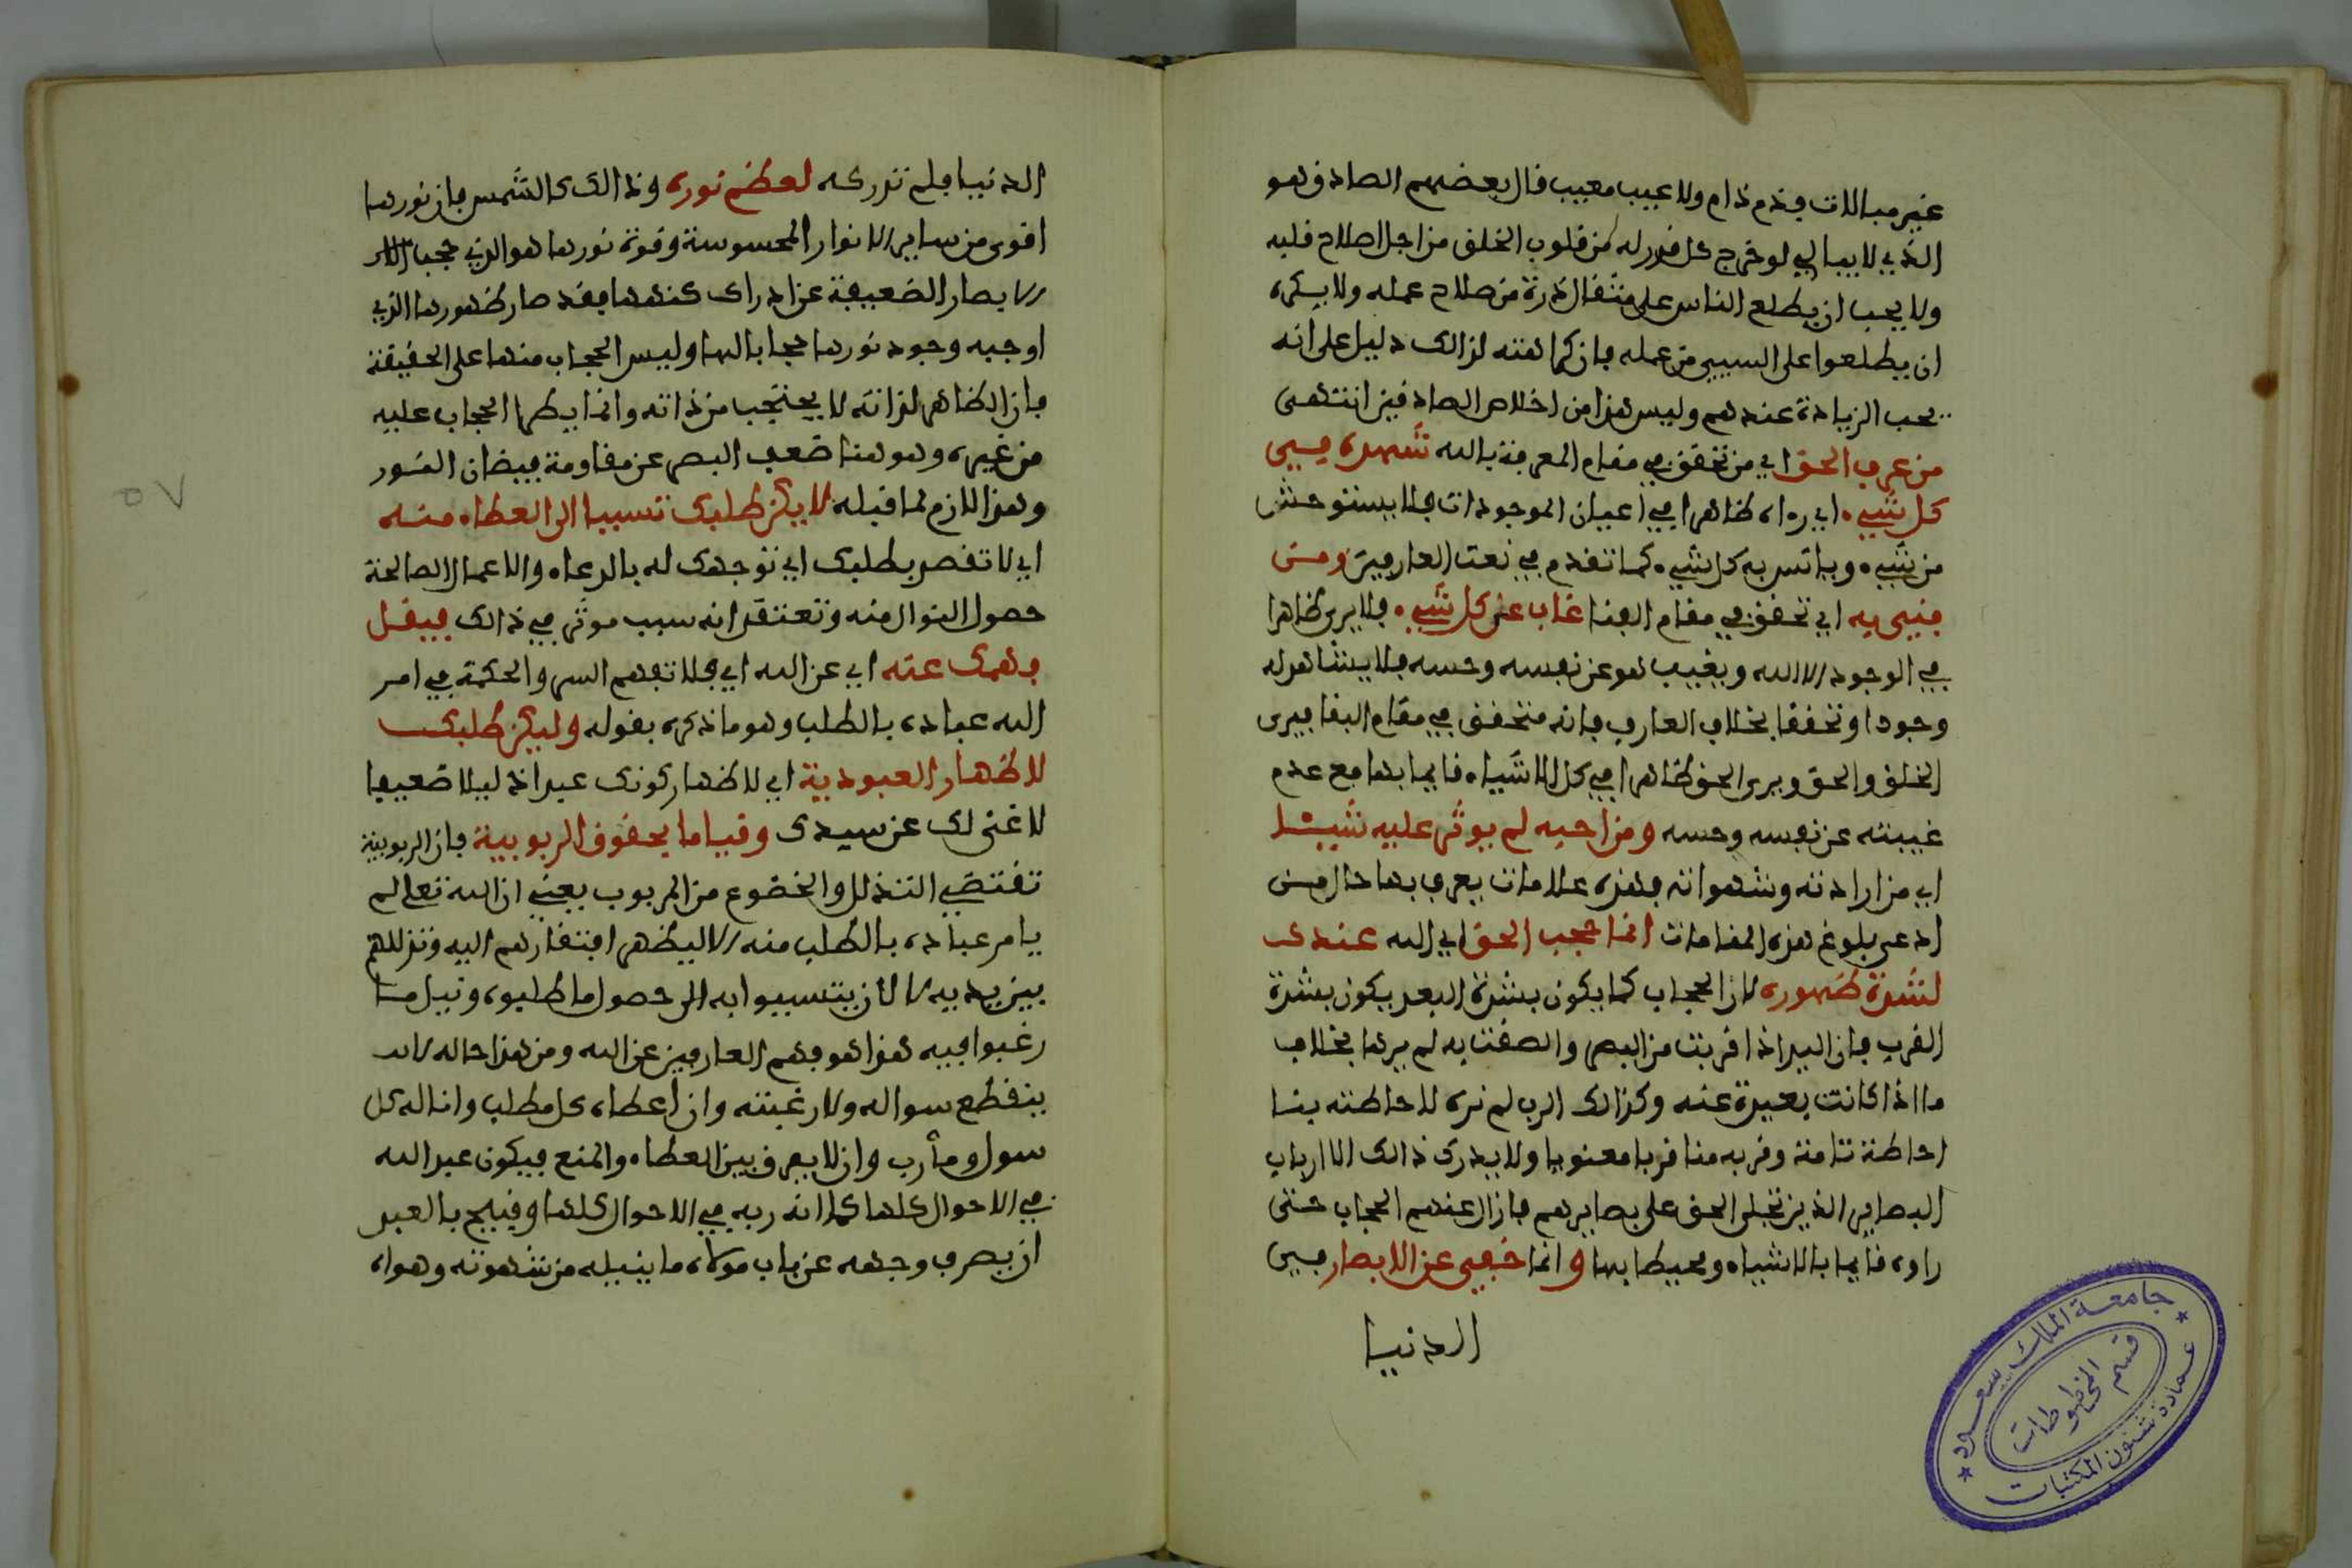 غير مبالات بذم ذام ولا عيب معيب قال بعضهم الصادق هو
الذي لا يبالي لو خرج كل قدر له من قلوب الخلق من اجل اصلاح قلبه
ولا يحب ان يطلع الناس على مثقال ذرة من صلاح عمله ولا يكره
ان يطلعوا على السيئ من عمله فان كراهته لذالك دليل على انه
يحب الزيادة عندهم وليس هذا من اخلاص الصادقين انتهى
من عرف الحق اي من تحقق في مقام المعرفة بالله شهده في
كل شيء اي رءاه ظاهرا في اعيان الموجودات فلا يستوحش
من شيء ويانس به كل شيء كما تقدم في نعت العارفين ومن
فني به اي تحقق في مقام الفنا غاب عن كل شيء فلا يرى ظاهرا
في الوجود الا الله ويغيب هو عن نفسه وحسه فلا يشاهد له
وجودا وتحققا بخلاف العارف فانه متحقق في مقام البقا فيرى
الخلق والحق ويرى الحق ظاهرا في كل الاشياء قايما بها مع عدم
غيبته عن نفسه وحسه ومن احبه لم يوثر عليه شيئا
اي من اراداته وشهواته وهذه علامات يعرف بها حال من
ادعى بلوغ هذه المقامات انما حجب الحق اي الله عندك
لشدة ظهوره لان الحجاب كما يكون بشدة البعد يكون بشدة
القرب فان اليد اذا قربت من البصر والصقت به لم يرها بخلاف
ما اذا كانت بعيدة عنه وكذالك الرب لم نره لاحاطته بنا
احاطة تامة وقربه منا قربا معنويا ولا يدرك ذالك الا ارباب
البصاير الذين تجلى الحق على بصايرهم فازال عنهم الحجاب حتى
راوه قايما بالاشياء ومحيطا بها وانما خفي عن الابصار في
الدنيا
الدنيا فلم تدركه لعظم نوره وذالك كالشمس فان نورها
اقوى من ساير الانوار المحسوسة وقوة نورها هو الذي حجب
الابصار الضعيفة عن ادراك كنهها فقد صار ظهورها الذي
اوجبه وجود نورها حجابا لها وليس الحجاب منها على الحقيقة
فان الظاهر لذاته لا يحتجب من ذاته وانما يطرا الحجاب عليه
من غيره وهو هنا ضعف البصر عن مقاومة فيضان النور
وهذا لازم لما قبله لا يكن طلبك تسببا الى العطاء منه
اي لا تقصر بطلبك اي توجهك له بالدعاء والاعمال الصالحة
حصول النوال منه وتعتقد انه سبب موثر في ذالك فيقل
فهمك عنه اي عن الله اي فلا تفهم السر والحكمة في امر
الله عباده بالطلب وهو ما ذكره بقوله وليكن طلبك
لاظهار العبودية اي لاظهار كونك عبدا ذليلا ضعيفا
لا غنى لك عن سيدك وقياما بحقوق الربوبية فان الربوبية
تقتضي التذلل والخضوع من المربوب يعني ان الله تعلى لم
يامر عباده بالطلب منه الا ليظهر افتقارهم اليه وتذللهم
بين يديه لا لان يتسببوا به الى حصول ما طلبوه ونيل ما
رغبوا فيه هذا هو فهم العارفين عن الله ومن هذا حاله لا
ينقطع سواله ولا رغبته وان اعطاه كل مطلب واناله كل
سول ومأرب وان لا يفرق بين العطاء والمنع فيكون عبد الله
في الاحوال كلها كما انه ربه في الاحوال كلها وقبيح بالعبد
ان يصرف وجهه عن باب مولاه ما ينيله من شهوته وهواه
٥٧
جامعة الملك سعود
قسم المخطوطات
عمادة شئون المكتبات